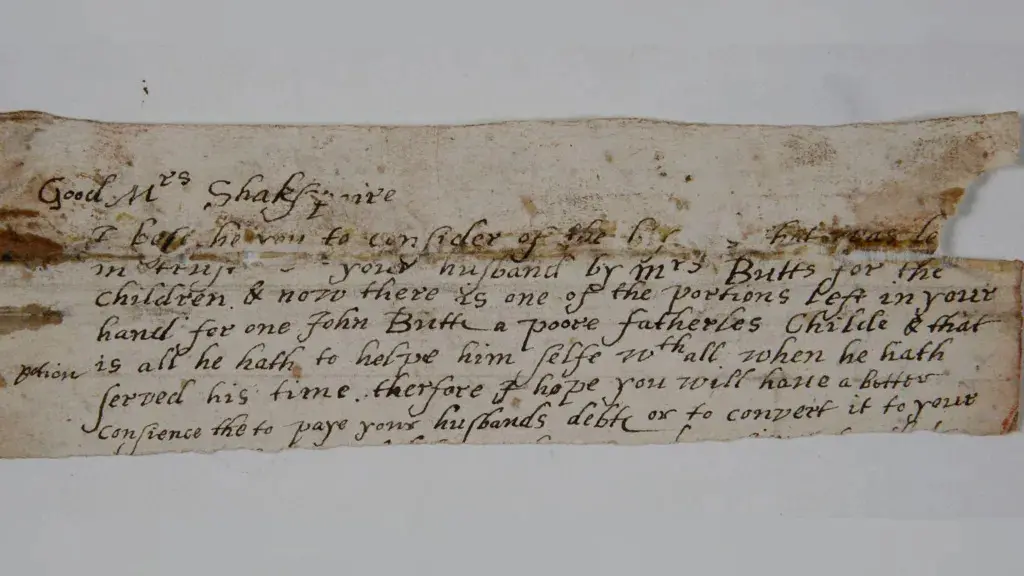 Good Mrs Shakspaire
I bese he you to consider of the that was le
in trust your husband by Mrs Butts for the
Children & now there is one of the portions left in your
hand for one John Butte a poore fatherles Childe & that
petion is all he hath to helpe him selfe wth all when he hath
served his time. therfore I hope you will have a better
Consience the to paye your husbands debte or to convert it to your